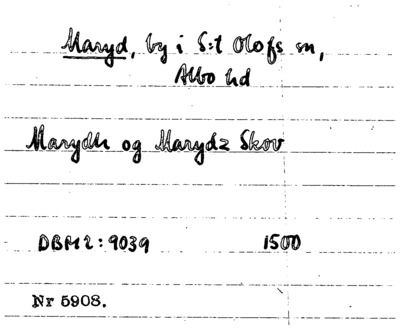 Maryd, by i S:t Olofs sn,
Albo hd
Marydh og Marydz Skov
DBM 2:9039 1500
Nr 5908.